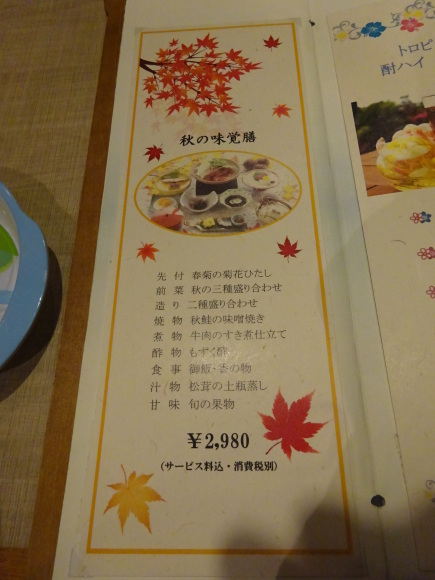 秋の味覚膳
先付 春菊の菊花ひたし
前菜 秋の三種盛り合わせ
造り 二種盛り合わせ
焼物 秋鮭の味噌焼き
煮物 牛肉のすき煮仕立て
酢物 もずく酢
食事 御飯・香の物
汁物 松茸の土瓶蒸し
甘味 旬の果物
￥2,980
(サービス料込・消費税別)
トロピ
酎ハイ